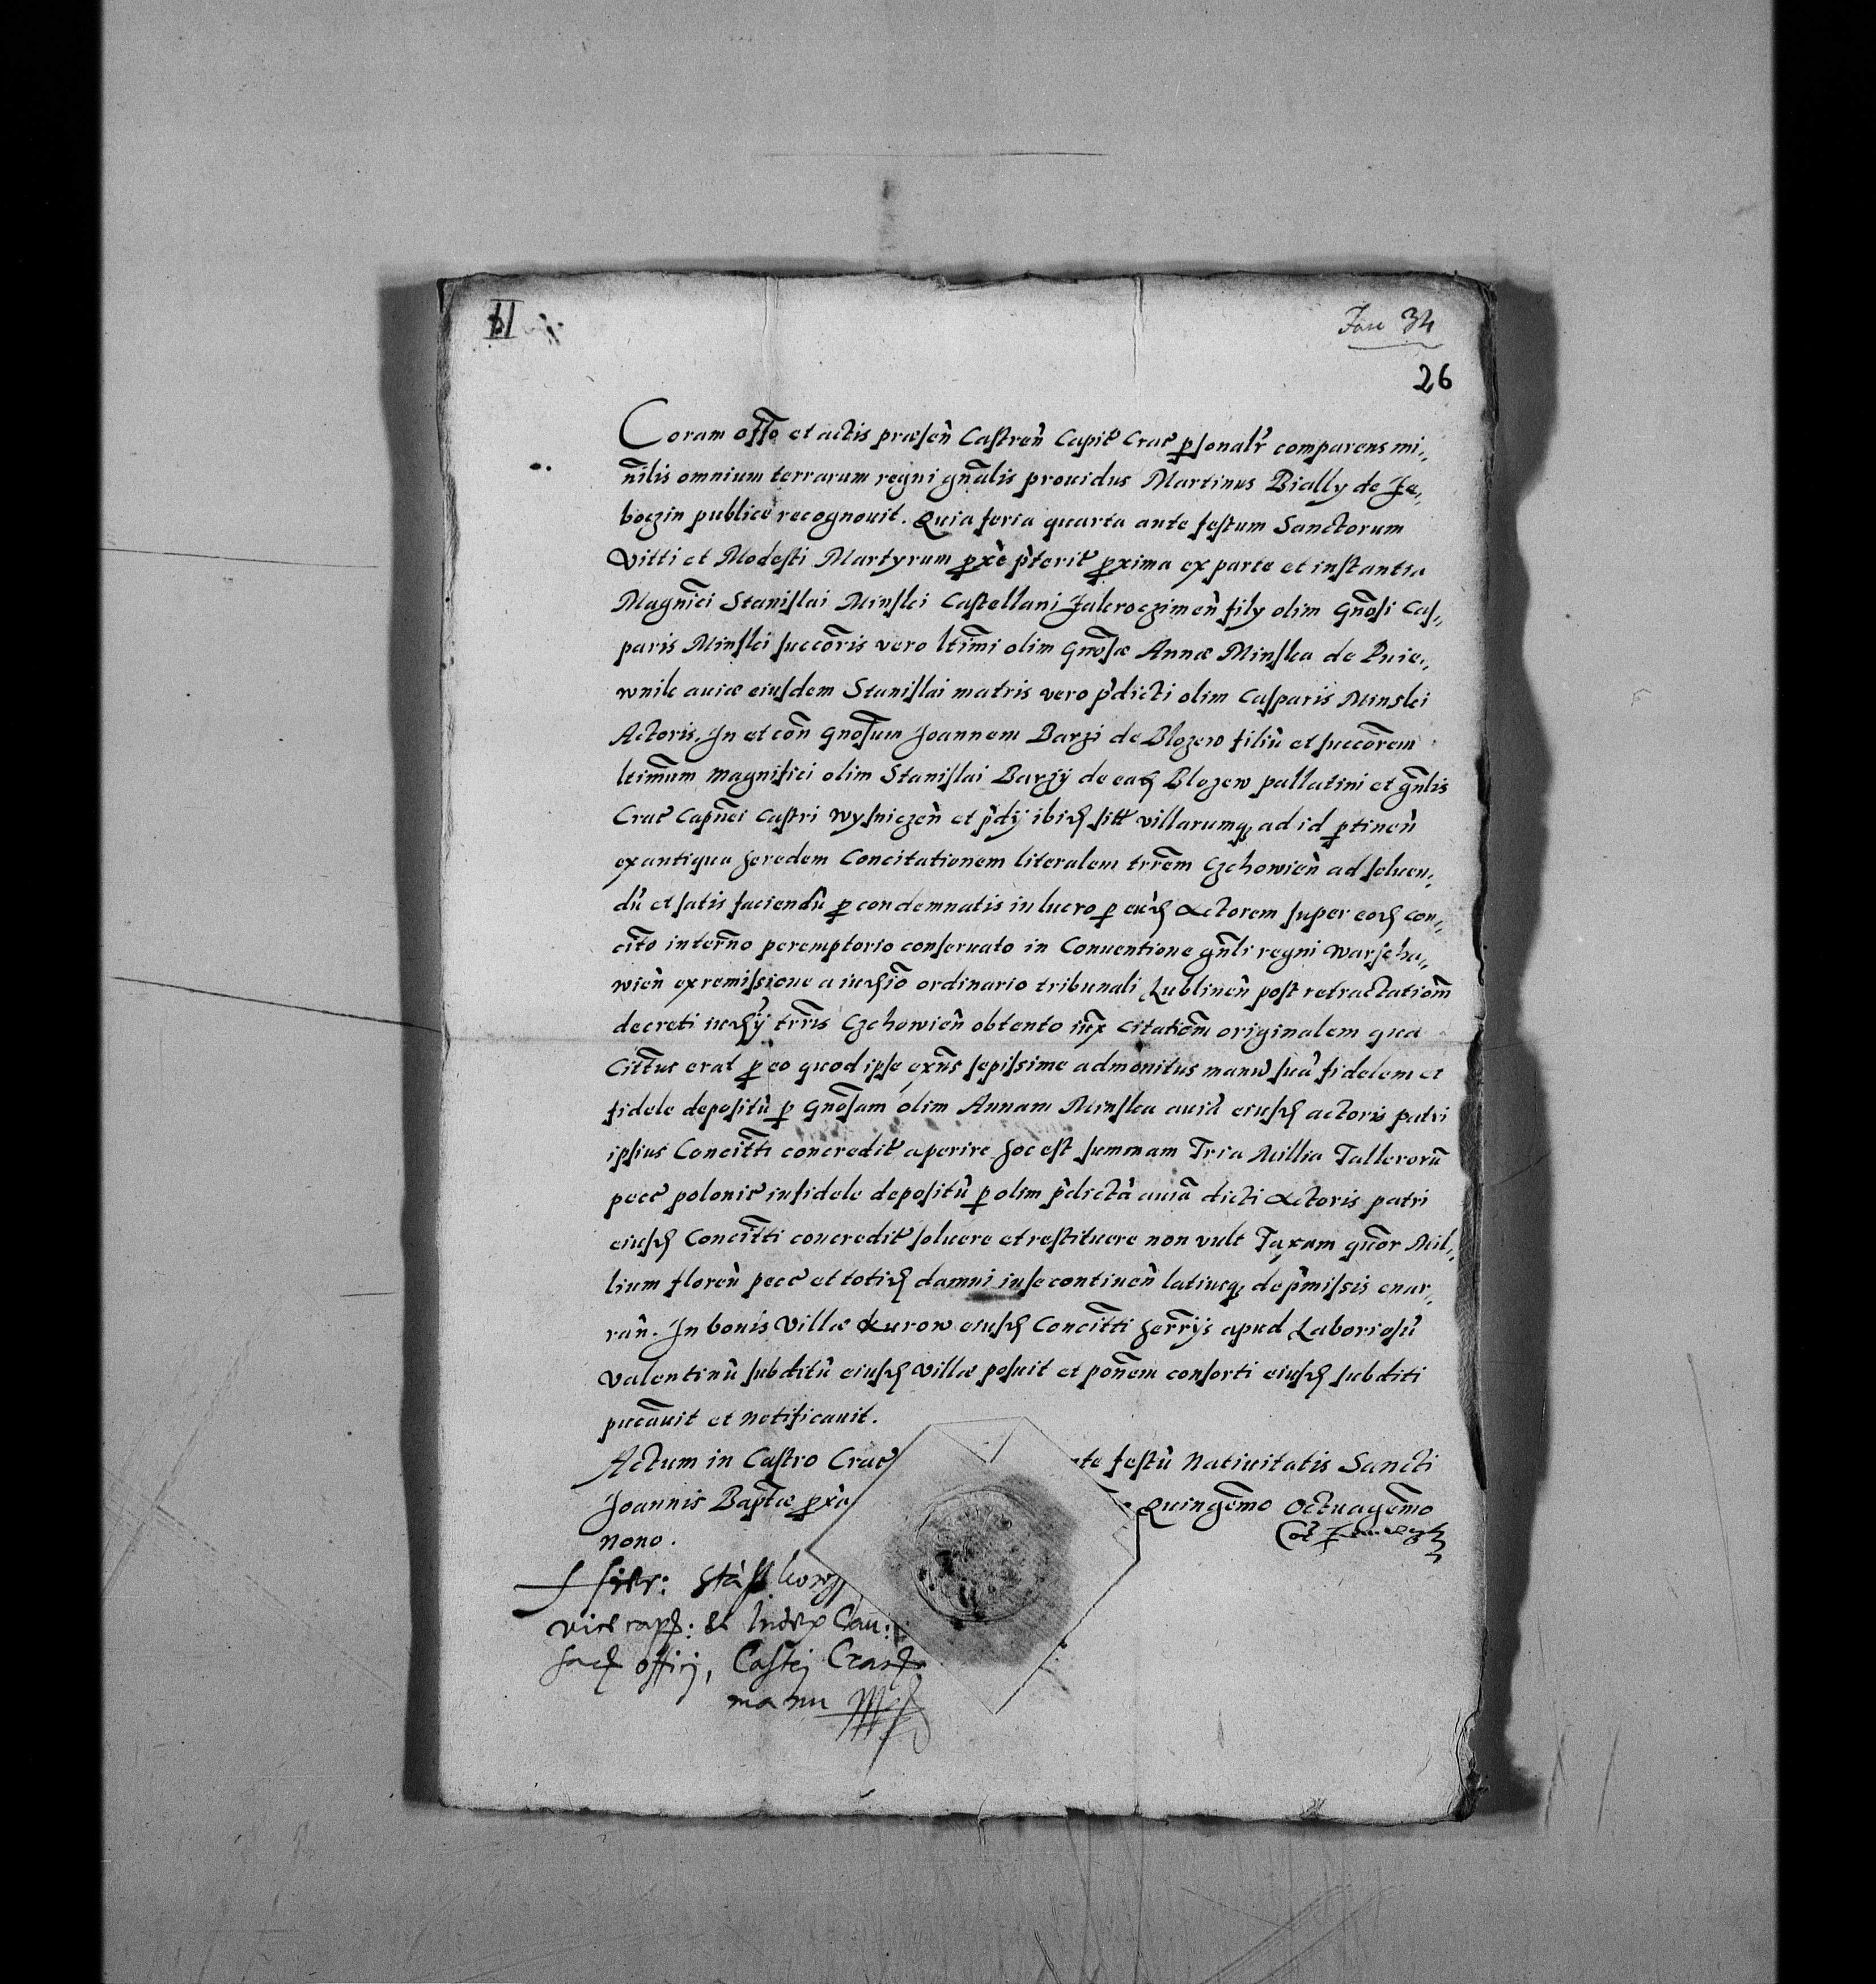 Fasc 34
26
Coram offo et actis præsen̄ Castren̄ Capit Crac p̱sonalr̄ comparens mi„
nīlis omnium terrarum regni gn̄alis prouidus Martinus Bially de Je„
boczin publice recognouit. Quia feria quarta ante festum Sanctorum
Vitti et Modesti Martyrum p̱xe p̄terit p̱xima ex parte et instantia
Magn̄ci Stanislai Minski Castellani Zakroczimen̄ filÿ olim Gn̄osi Cas„
paris Minski succōris vero ltīmi olim Gn̄osæ Annæ Minska de Pnie„
wnik auiæ eiusdem Stanislai matris vero p̄dicti olim Casparis Minski
Actoris. In et con̄ Gnōsum Joannem Barzi de Blozew filiū et succōrem
ltīmum magnifici olim Stanislai Barzÿ de eaḏ Blozew pallatini et gn̄lis
Crac Capn̄ei Castri Wysniczen̄ et p̄dÿ ibiḏ sitt villarumq̨ ad id p̱tinen̄
ex antiqua heredem Concitationem literalem trr̄em Czchowien̄ ad soluen„
dū et satis faciendū p̱ condemnatis in lucro p̱ eūd actorem super eoḏ con„
cīto intern̄o peremptorio conseruato in Conuentione gn̄li regni Warscha„
wien̄ ex remissione a iudīo ordinario tribunali Lublinen̄ post retractatiōm
decreti iudÿ trr̄is Czchowien̄ obtento iux̄ Citatiōm originalem qua
Citt̄us erat p̱ eo quod ipse exn̄s sepissime admonitus manū suā fidelem et
fidele depositū p̱ Gnōsam olim Annam Minska auiā eiusḏ actoris patri
ipsius Concitt̄i concredit aperire hoc est summam Tria Millia Tallerorū
pecc polonic in fidele depositū p̱ olim p̄dictā auiā dicti actoris patri
eiusḏ Concitt̄i concredit soluere et restituere non vult Taxam qūor Mil„
lium floren̄ pecc et totiḏ damni in se continen̄ latiusq̨ de p̄missis enar„
ran̄. In bonis Villæ Kurow eiusḏ Concitt̄i herr̄ÿs apud Laboriosū
Valentinū subditū eiusḏ villæ posuit et pon̄em consorti eiusḏ subditi
pucāuit et notificauit.
Actum in Castro Crac te festū Natiuitatis Sancti
Joannis Bapt̄æ p̱xia Quingēmo Octuagēmo
nono.
vice capt: & Iudex Cau:
officij, Cast Crac
manu